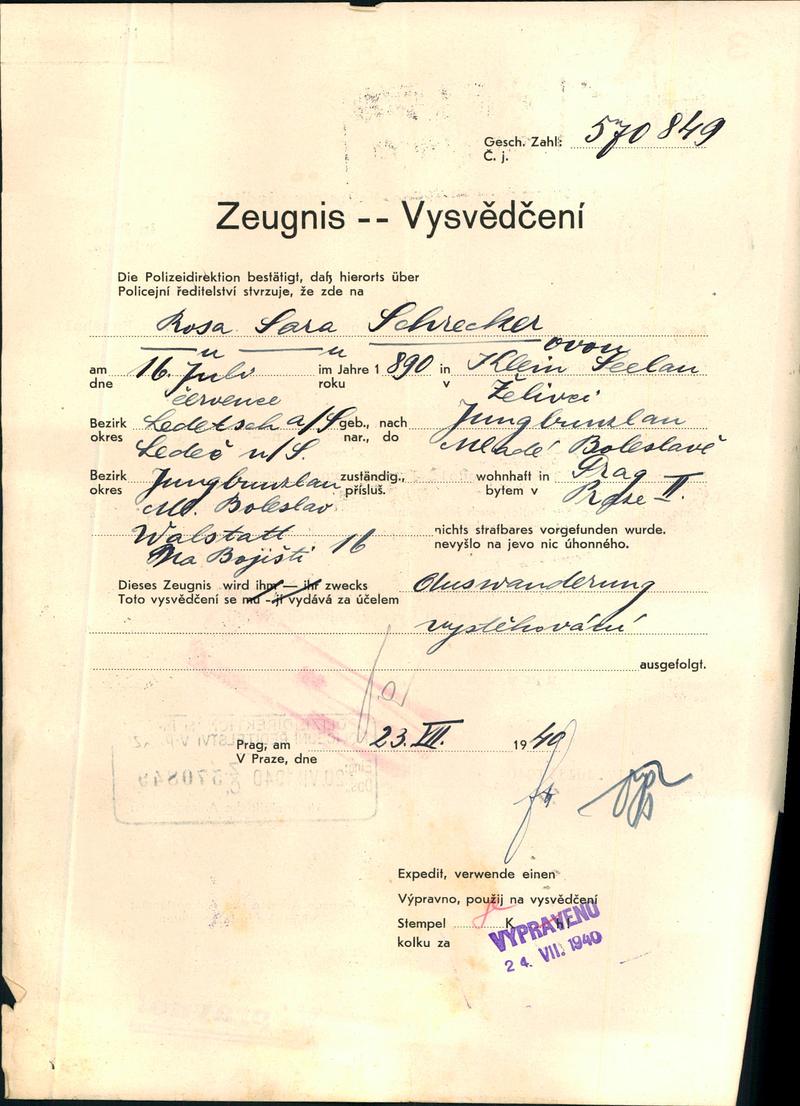 Gesch. Zahl: 570 849
Č. j.
Zeugnis -- Vysvědčení
Die Polizeidirektion bestätigt, daß hierorts über
Policejní ředitelství stvrzuje, že zde na
Rosa Sara Schrecker
ovou
am 16. Juli im Jahre 1 890 in Klein Seelau
dne roku v
července Želivci
Bezirk Ledetsch a/S geb., nach Jungbunzlau
okres nar., do
Ledeč n/S. Mladé Boleslavě
Bezirk Jungbunzlau zuständig., wohnhaft in Prag
okres přísluš. bytem v Praze II.
Ml. Boleslav
Walstatt nichts strafbares vorgefunden wurde.
Na Bojišti 16 nevyšlo na jevo nic úhonného.
Dieses Zeugnis wird ihm — ihr zwecks Auswanderung
Toto vysvědčení se mu - jí vydává za účelem
vystěhování
ausgefolgt.
Prag, am 23. VII. 1940
V Praze, dne
20. VII 1940 570849
Expedit, verwende einen
Výpravno, použij na vysvědčení
Stempel K
kolku za
VYPRAVENO
24. VII. 1940